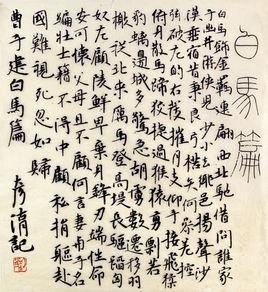 白馬篇
白馬飾金羈連翩西北馳借問誰家
子幽并游俠兒少小去鄉邑揚聲沙
漠垂宿昔秉良弓楛矢何參差控
弦破左的右發摧月支仰手接飛猱
俯身散馬蹄狡捷過猴猿勇剽若
豹螭邊城多警急胡虜數遷移羽
檄從北來厲馬登高堤長驅蹈匈
奴左顧陵鮮卑棄身鋒刃端性命
安可懷父母且不顧何言妻與子名
編壯士籍不得中顧私捐軀赴
國難視死忽如歸
曹子建白馬篇
彥清記